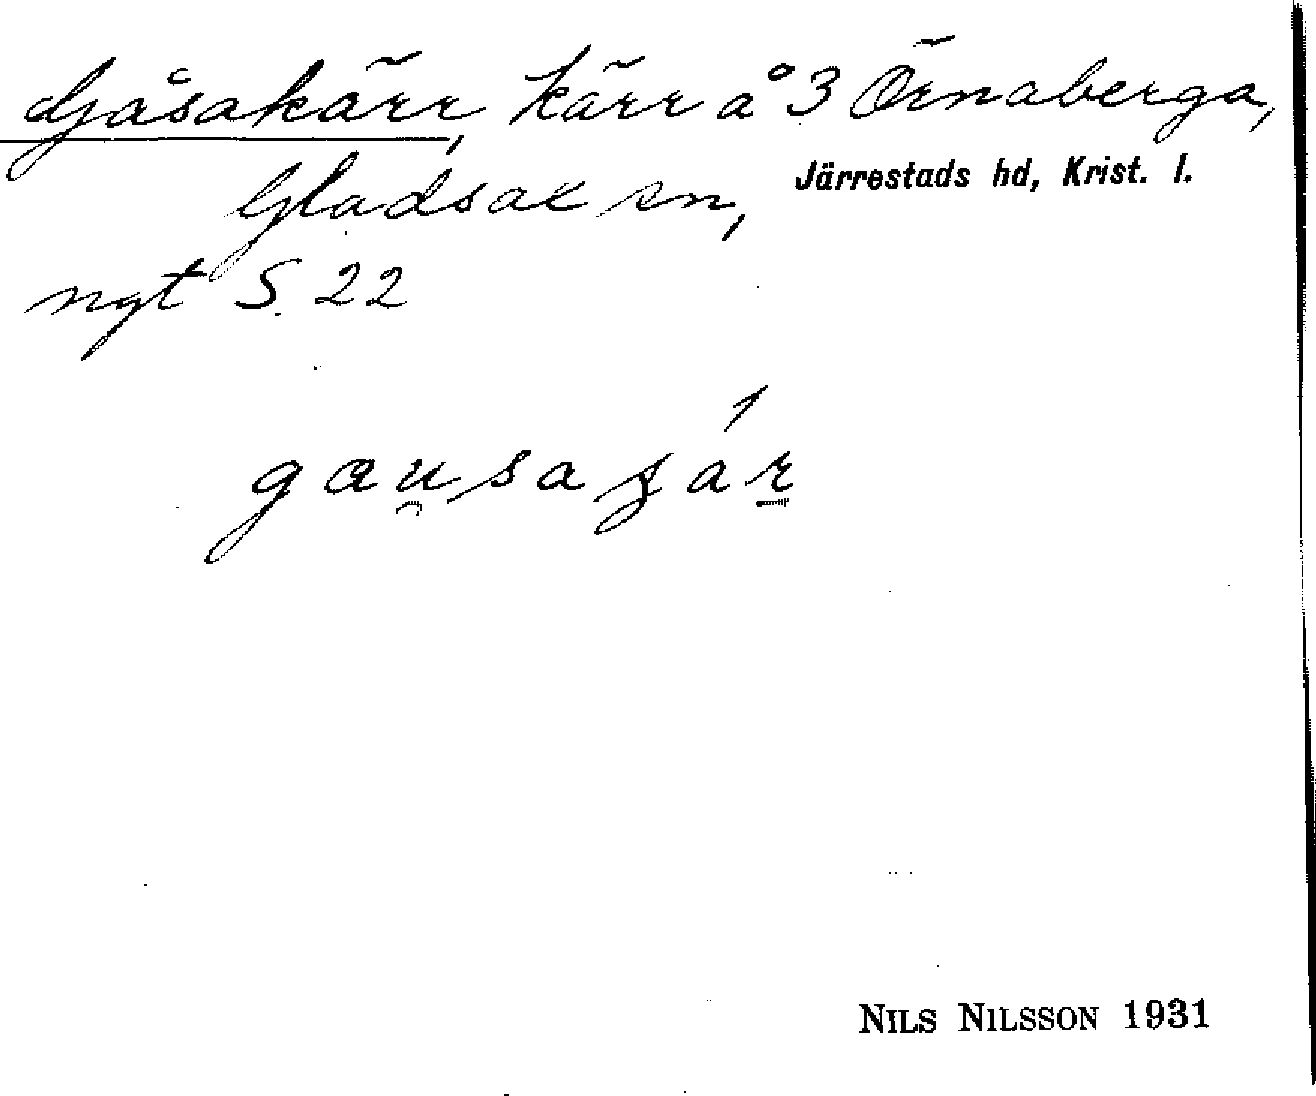 Gåsakärr, kärr å 3 Örnaberga,
Gladsax sn, Järrestads hd, Krist. l.
ngt S. 22
NILS NILSSON 1931